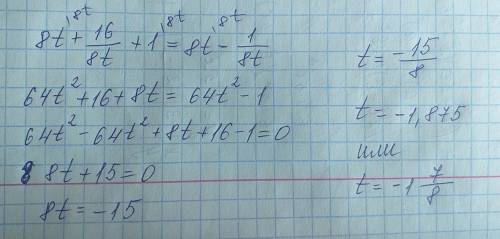 8t^{\8t} + 16/8t + 1^{\8t} = 8t^{\8t} - 1/8t
64t² + 16 + 8t = 64t² - 1
64t² - 64t² + 8t + 16 - 1 = 0
8t + 15 = 0
8t = -15
t = -15/8
t = -1,875
или
t = -1 7/8